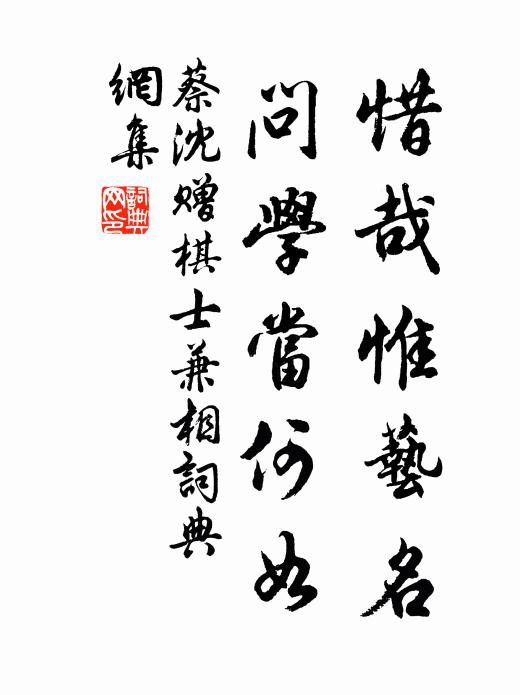 惜哉惟藝名
問學當何如
蔡沈贈棋士兼相詞典
網集
詞典
网印